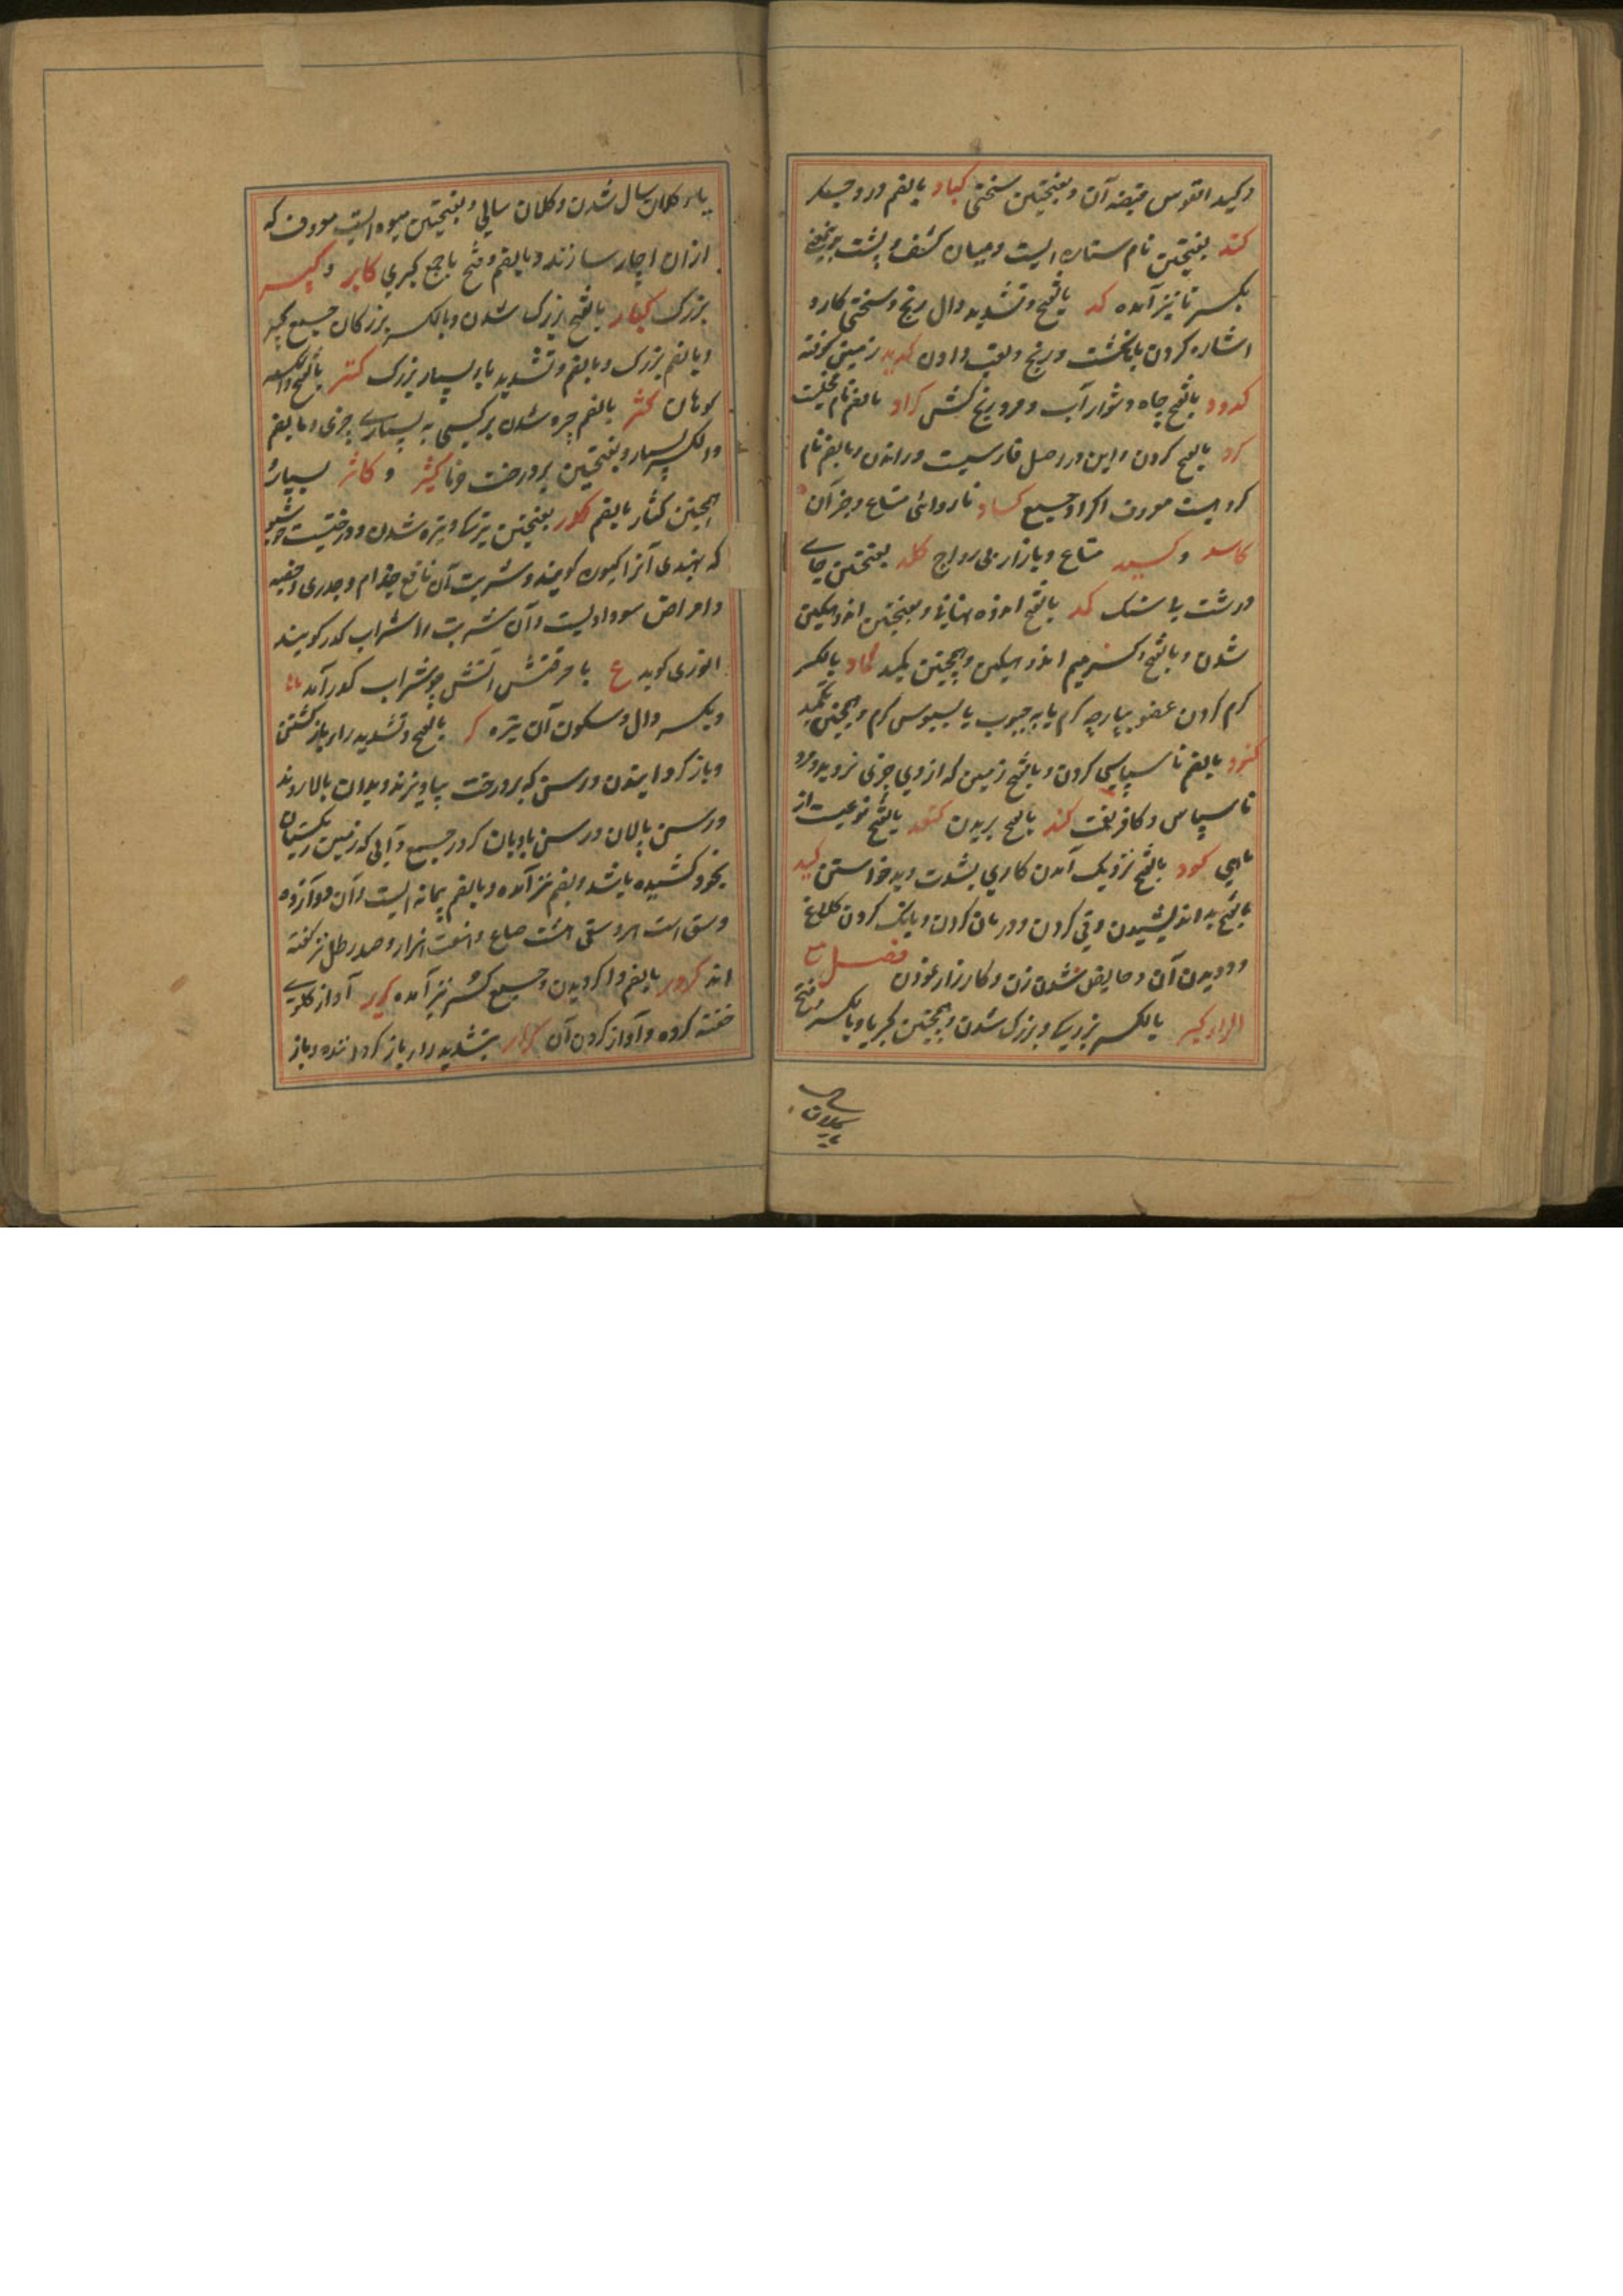 وکبد القوس قبضه آن و بفتحتین سختی کباد بالضم درد جگر
کتد بفتحتین نام ستاره ایست و میان کتف و پشت
بکسر تا نیز آمده کد بالفتح و تشدید دال رنج و سختی کار و
اشاره کردن بانگشت و رنج و تعب دادن کدید زمین کوفته
کدود بالفتح چاه دشوار آب و مرد رنج کش کراد بالضم نام
کرد بالفتح کردن و این در اصل فارسیست و راندن و بالضم نام
کرو هیست معروف اکراد جمع کساد ناروائی متاع و جز آن
کاسد و کسید متاع و بازار بی رواج کلد بفتحتین جای
درشت با سنگ کمد بالفتح اندوه نهانی و بفتحتین اندوهگین
شدن و بالفتح و کسر میم اندوهگین و همچنین کمید کماد بالکسر
گرم کردن عضو بپارچه گرم یا به حبوب یا بسبوس گرم و همچنین تکمید
کنود بالضم ناسپاسی کردن و بالفتح زمین که از وی چیزی نروید و مرد
ناسپاس و کافر نعمت کند بالفتح بریدن کنعد بالفتح نوعیست از
ماهی کود بالفتح نزدیک آمدن کاری بشدت و بد خواستن کید
بالفتح بد اندیشیدن و قی کردن و درمان کردن و بانک کردن کلاغ
و دویدن آن و حایض شدن زن و کارزار نمودن فصل مع
الراء کبر بالکسر بزرگی و بزرگ شدن و همچنین کبریا و بالکسر و فتح
با و کلان سال شدن و کلان سالی و بفتحتین میوه ایست معروف که
ازان اچار سازند و بالضم و فتح با جمع کبری کابر و کبیر
بزرگ کبار بالفتح بزرگ شدن و بالکسر بزرگان جمع کبیر
و بالضم بزرگ و بالضم و تشدید با بسیار بزرگ کتر بالفتح و الکسر
کوهان کثر بالضم چیره شدن بر کسی به بسیاری چیزی و بالضم
والکسر بسیار و بفتحتین پیه درخت خرما کثیر و کاثر بسیار
همچنین کثار بالضم کدر بفتحتین تیرگی و تیره شدن و درختیست خوشبو
که بهندی آنرا کیوره گویند و شربت آن نافع جذام و جدری و حصبه
و امراض سوداویست و آن شربت را شراب کدر گویند
انوری گوید ع با مزقتش آتش چو شراب کدر آمد
و بکسر دال و سکون آن تیره کر بالفتح و تشدید راء باز گشتن
و باز گردانیدن و رسن که بر درخت بیاویزند و بدان بالا روند
و رسن پالان و رسن بادبان کرور جمع و آبی که زمین ریگستان
بخود کشیده باشد و بضم نیز آمده و بالضم پیمانه ایست و آن دوازده
وسق است هر وسقی شصت صاع و هفت هزار و صد رطل نیز گفته
اند کرور بالضم وا گردیدن و جمع کر نیز آمده کریر آواز گلوی
خفته کرده و آواز کردن آن کرار بتشدید راء باز گرداننده و باز